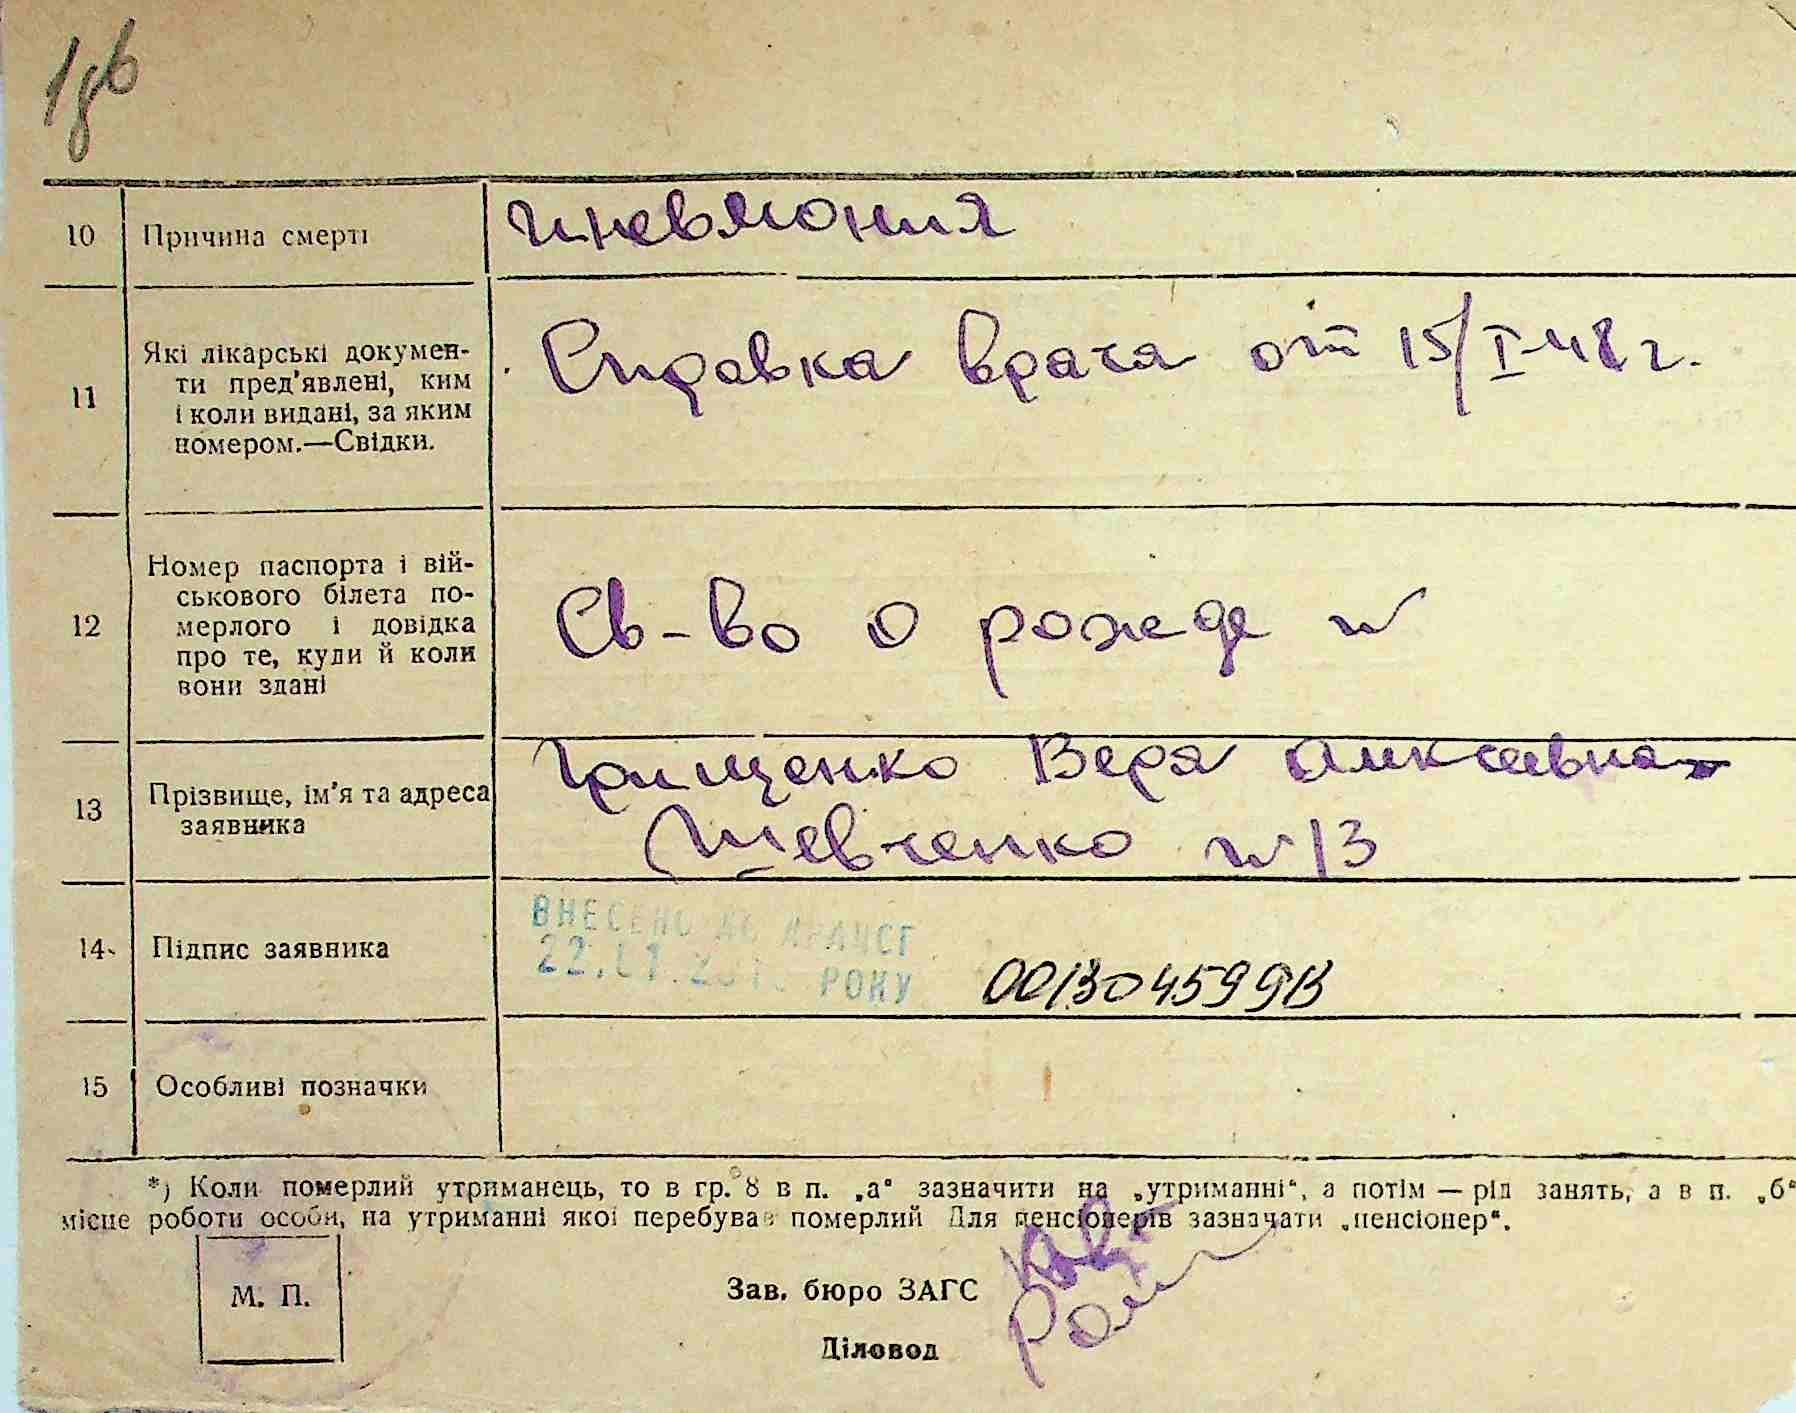 10 Причина смерті пневмония
11 Які лікарські докумен-
ти пред'явлені, ким
і коли видані, за яким
номером.—Свідки.
Справка врача от 15/I-48 г.
12 Номер паспорта і вій-
ськового білета по-
мерлого і довідка
про те, куди й коли
вони здані
Св-во о рожде
13 Прізвище, ім'я та адреса
заявника
Грищенко Вера Алексеевна
Шевченко 13
14 Підпис заявника
ВНЕСЕНО ДО ДРАЦСГ
РОКУ
00130459913
15 Особливі позначки
*) Коли померлий утриманець, то в гр. 8 в п. „а“ зазначити на „утриманні“, а потім — рід занять, а в п. „б“
місце роботи особи, на утриманні якої перебував померлий Для пенсіонерів зазначати „пенсіонер“.
М. П.
Зав. бюро ЗАГС
Діловод